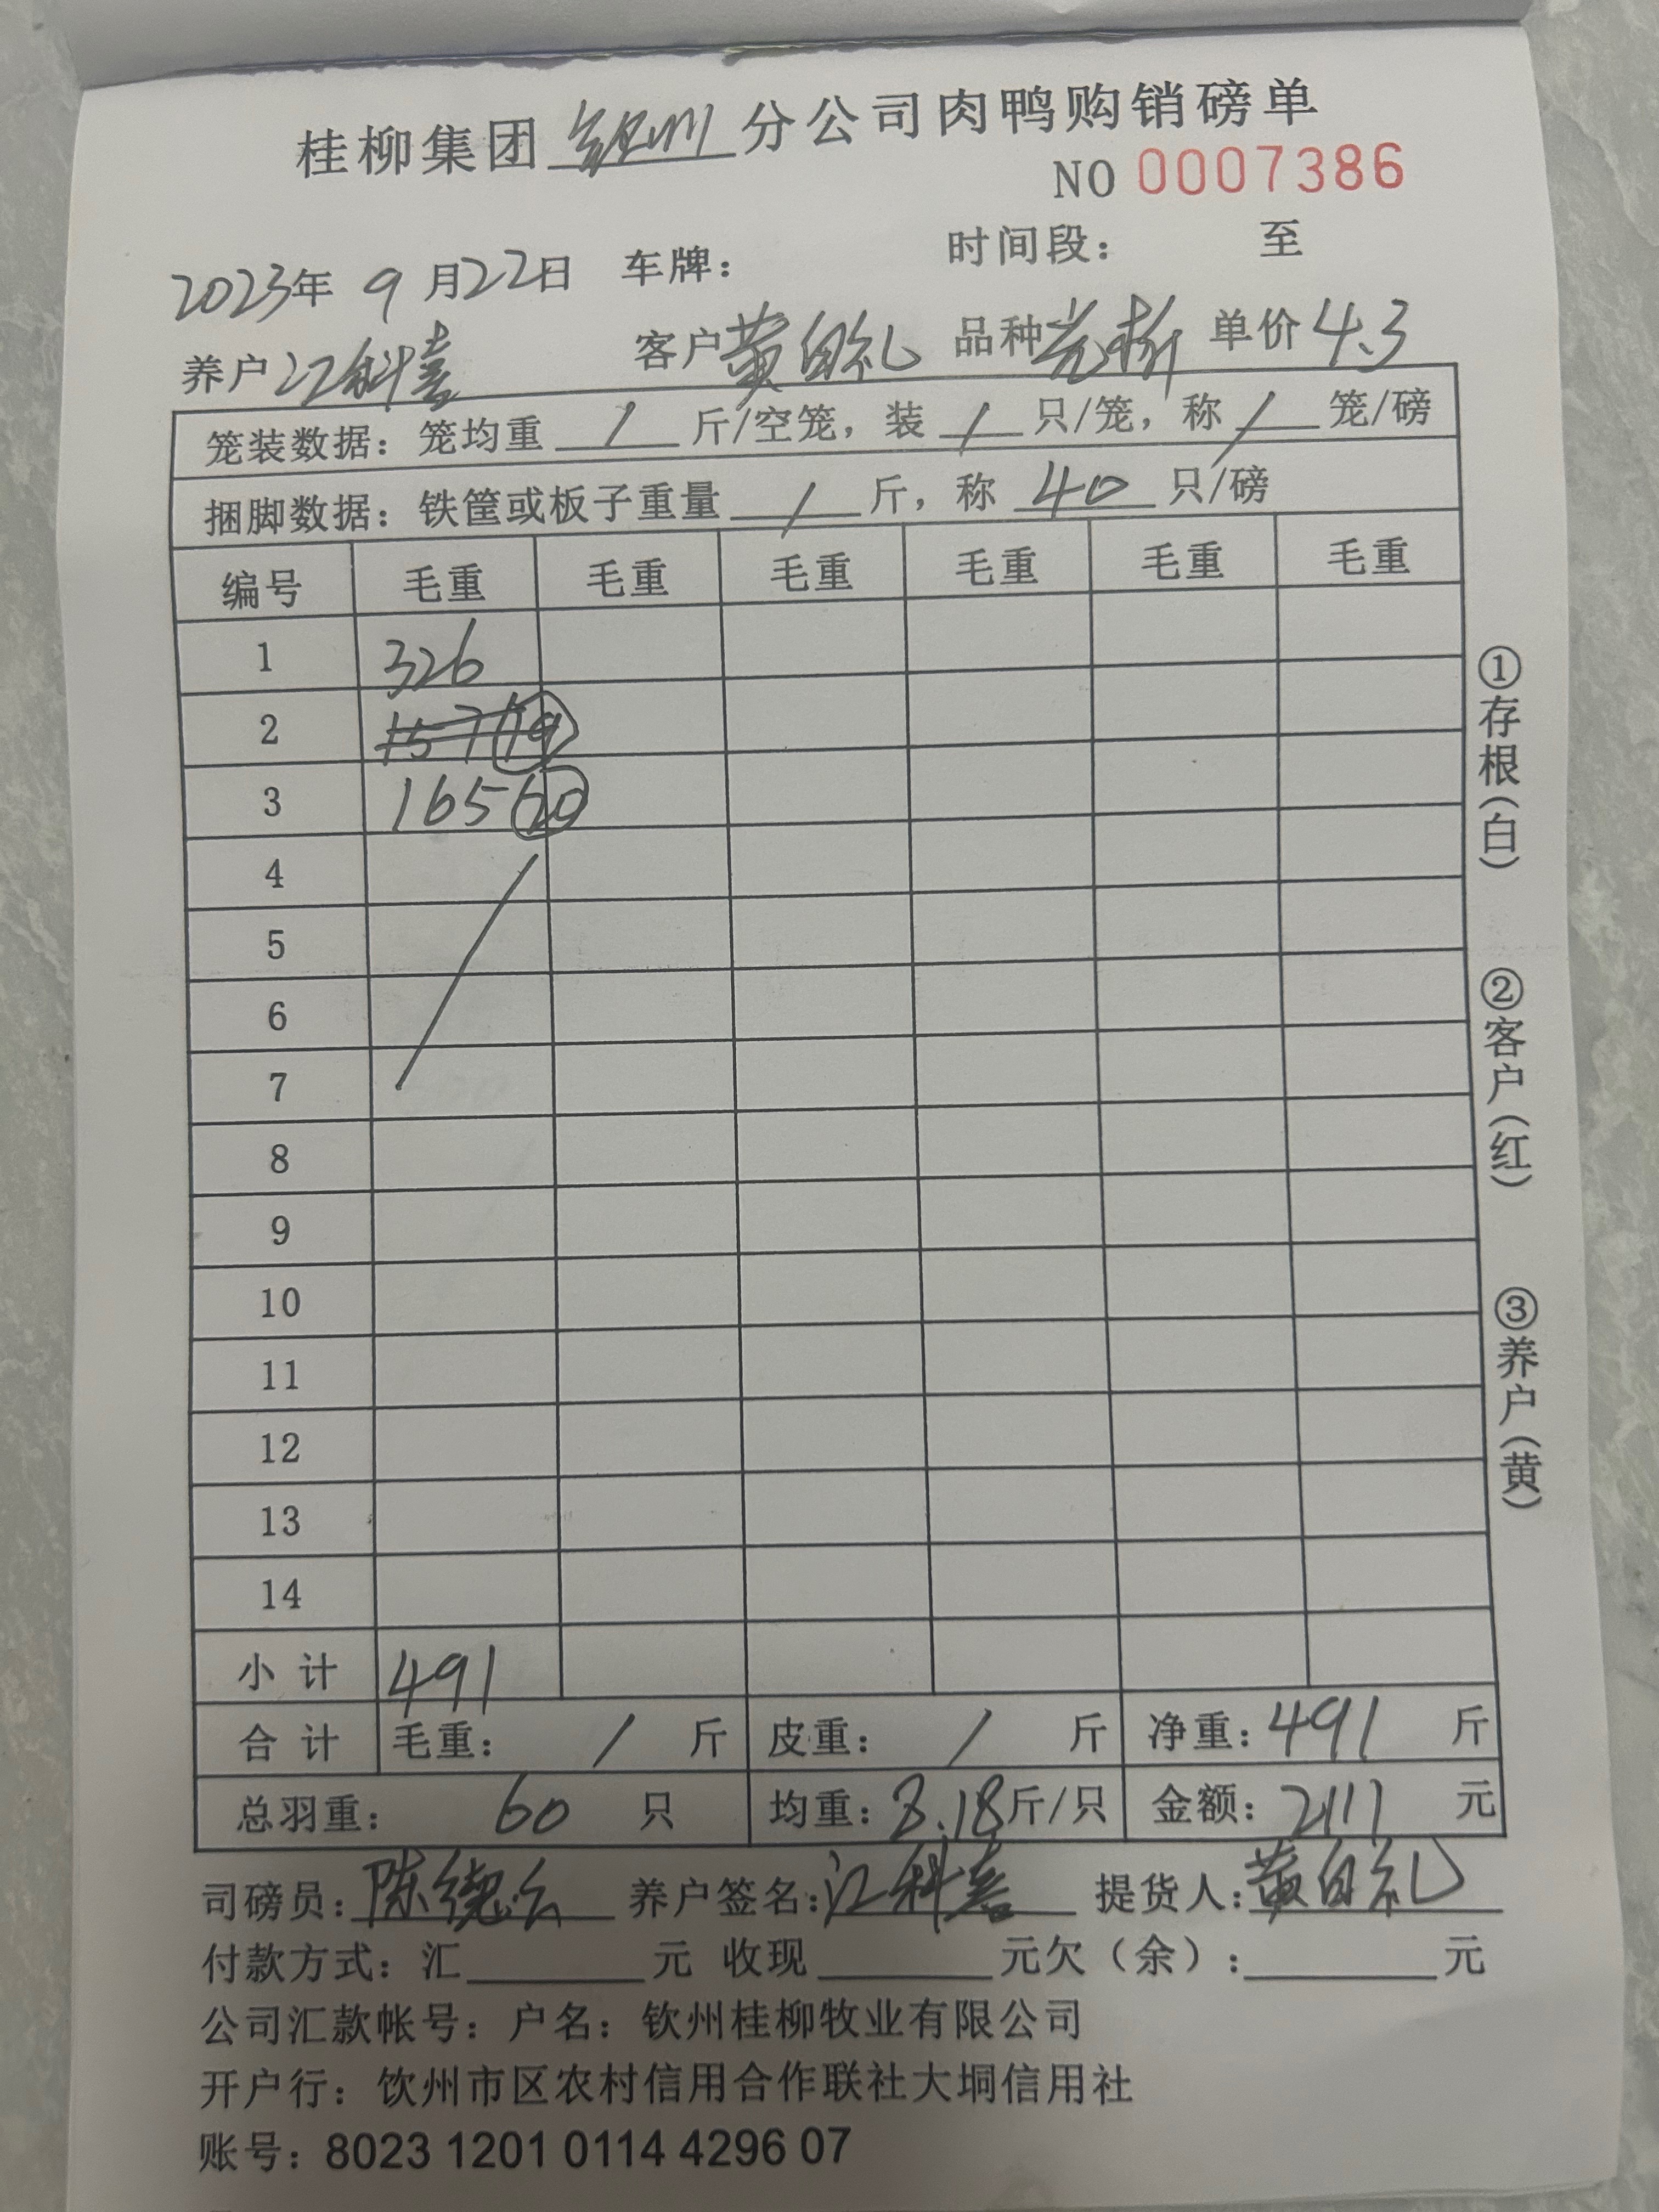 桂柳集团 钦州 分公司肉鸭购销磅单
NO 0007386
2023年 9 月22日 车牌： 时间段： 至
养户 江科喜 客户 黄自礼 品种 单价 4.3
笼装数据：笼均重 / 斤/空笼，装 / 只/笼，称 / 笼/磅
捆脚数据：铁筐或板子重量 / 斤，称 40 只/磅
编号 毛重 毛重 毛重 毛重 毛重 毛重
1 326
2 157 19
3 165 20
4
5
6
7
8
9
10
11
12
13
14
小 计 491
合 计 毛重： / 斤 皮重： / 斤 净重：491 斤
总羽重： 60 只 均重：8.18斤/只 金额：2111 元
司磅员：陈 养户签名：江科喜 提货人：黄自礼
付款方式：汇 元 收现 元欠（余）： 元
公司汇款帐号：户名：钦州桂柳牧业有限公司
开户行：钦州市区农村信用合作联社大垌信用社
账号：8023 1201 0114 4296 07
①存根(白)
②客户(红)
③养户(黄)